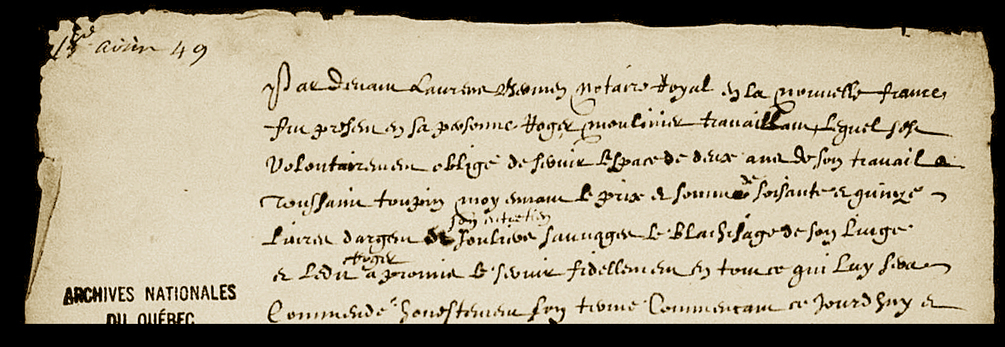 avril 49
Par Devant Laurens Bermen Notaire Royal en La Nouvelle france,
fut present en sa personne Roger moulinier travaillant, Lequel sest
Volontairement obligé de servir Lespace de deux ans de son travail a
Toussaint toupin moyennant Le prix et somme de soisante et quinze
son entretien
Livres dargent souliers sauvages Le Blachisage de son Linge
Roger
et Ledit a promis Le servir fidellement en tout ce qui Luy sera
Commendé honestement son terme Commencant ce Jourdhuy et
ARCHIVES NATIONALES
DU QUÉBEC